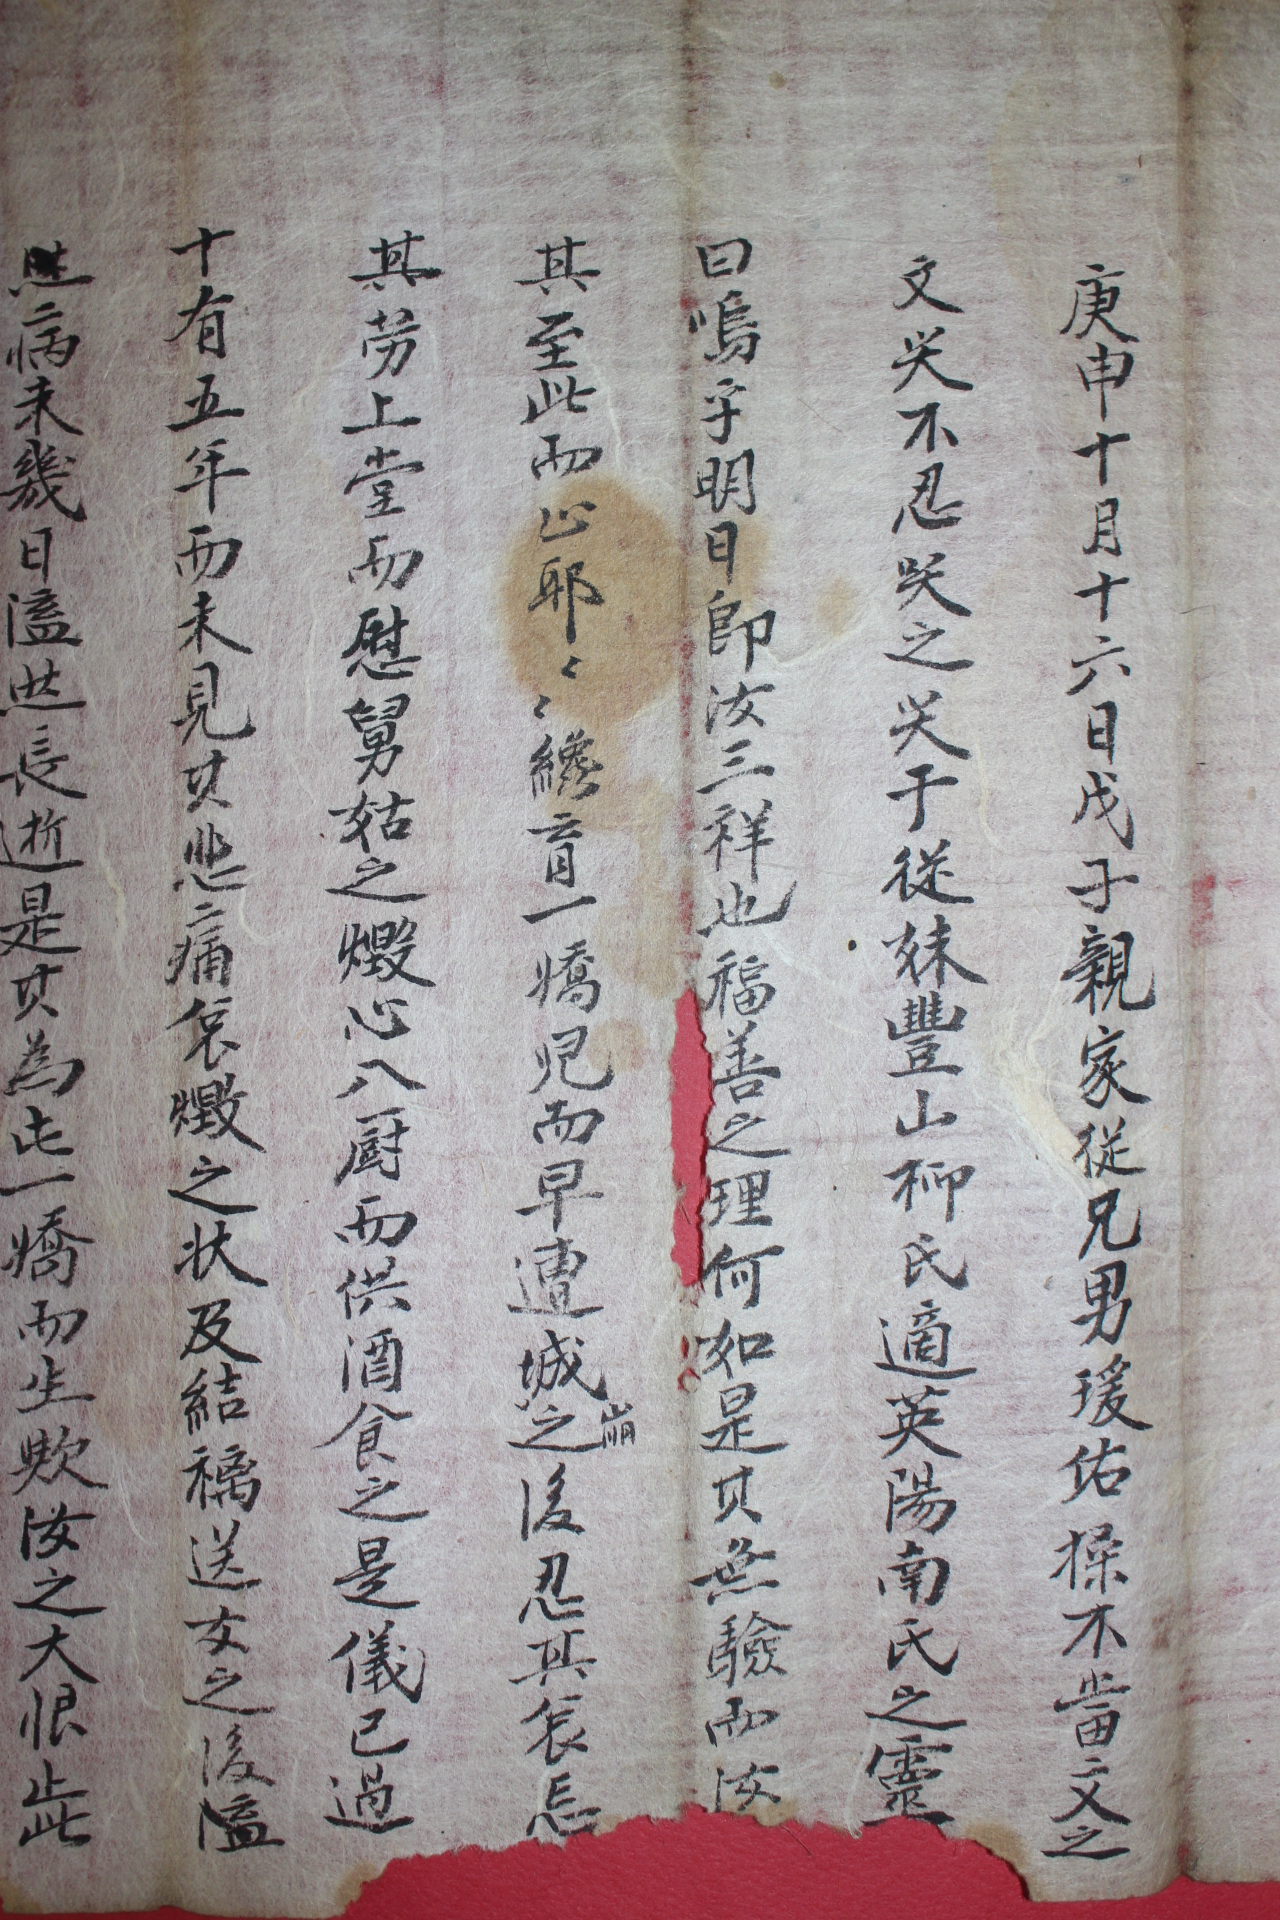 庚申十月十六日戊子親家從兄男瑗佑操不當文之
文哭不忍哭之哭于從妹豐山柳氏適英陽南氏之靈
曰嗚乎明日卽汝三祥也福善之理何如是其無驗而汝
其至此而止耶〻〻纔育一嬌児而早遭城崩之後忍其哀忘
其劳上堂而慰舅姑之燬心入厨而供酒食之是儀已過
十有五年而未見其悲痛哀燬之状及結褵送女之後溘
然病未幾日溘然長逝是其為此一嬌而生歟汝之大恨此